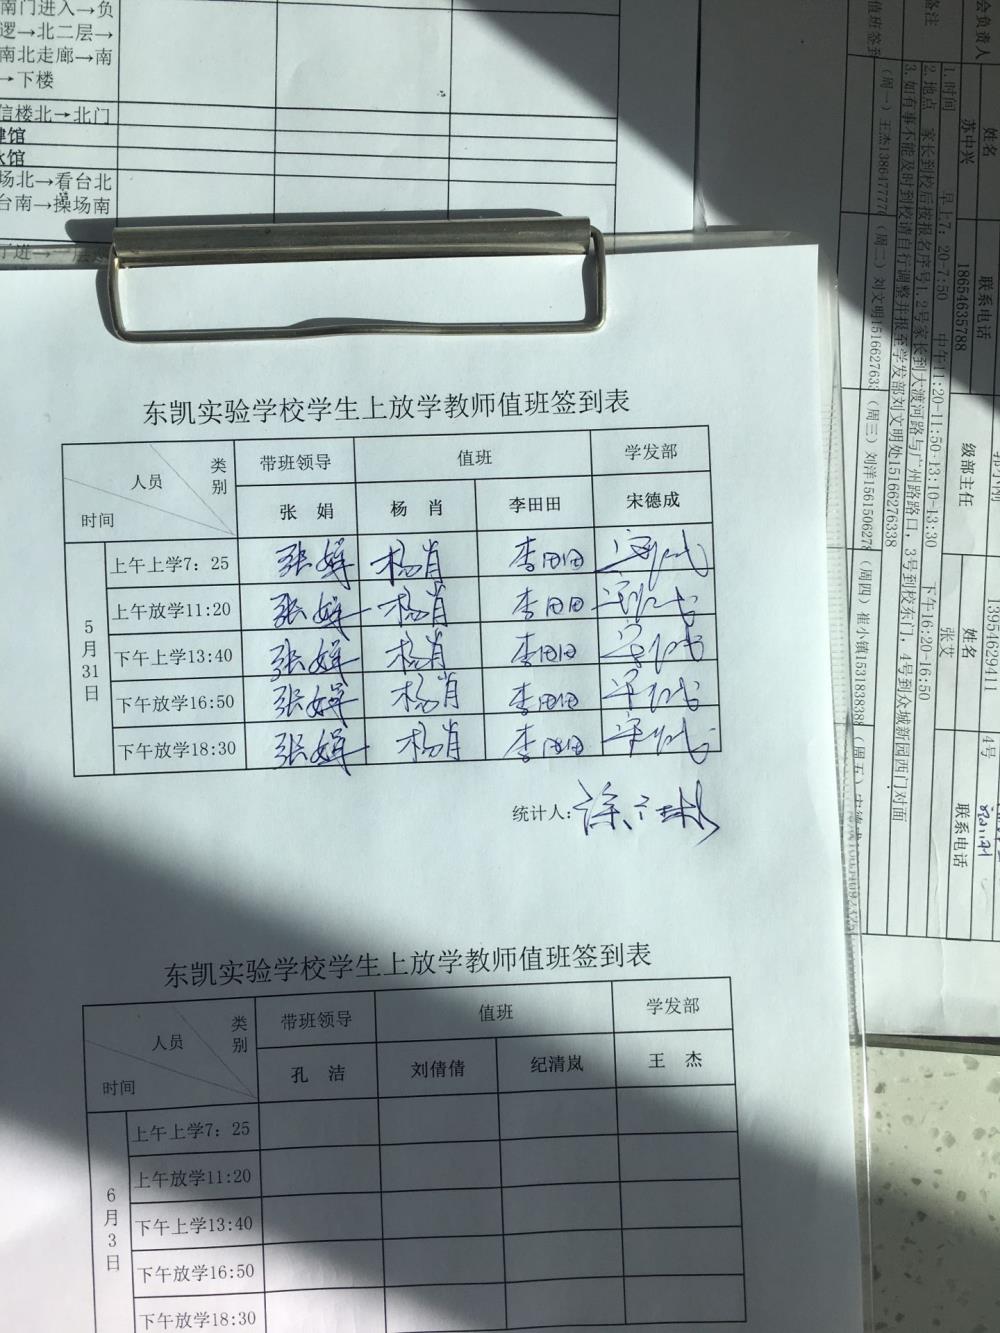 南门进入→负
逻→北二层→
南北走廊→南
→下楼
信楼北→北门
场北→看台北
台南→操场南
东凯实验学校学生上放学教师值班签到表
人员 类别 带班领导 值班 学发部
时间 张 娟 杨 肖 李田田 宋德成
5月31日
上午上学7: 25 张娟 杨肖 李田田 宋德成
上午放学11:20 张娟 杨肖 李田田 宋德成
下午上学13:40 张娟 杨肖 李田田 宋德成
下午放学16:50 张娟 杨肖 李田田 宋德成
下午放学18:30 张娟 杨肖 李田田 宋德成
统计人:
东凯实验学校学生上放学教师值班签到表
人员 类别 带班领导 值班 学发部
时间 孔 洁 刘倩倩 纪清岚 王 杰
6月3日
上午上学7: 25
上午放学11:20
下午上学13:40
下午放学16:50
下午放学18:30
会负责人 姓名 联系电话 级部主任 姓名 4号 联系电话
苏中兴 18654635788 张艾 13954629411
备注
1.时间 早上7: 20-7:50 中午11:20-11:50·13:10-13:30 下午16:20-16:50
2.地点 家长到校后按报名序号1.2号家长到大渡河路与广州路路口，3号到校东门，4号到众城新园西门对面
3.如有事不能及时到校请自行调整并报至学发部刘文明处15166276338
值班签到
(周一) 王杰1386477777 (周二) 刘文明1516627633 (周三) 刘洋1561506278 (周四) 崔小镇1531838388 (周五)